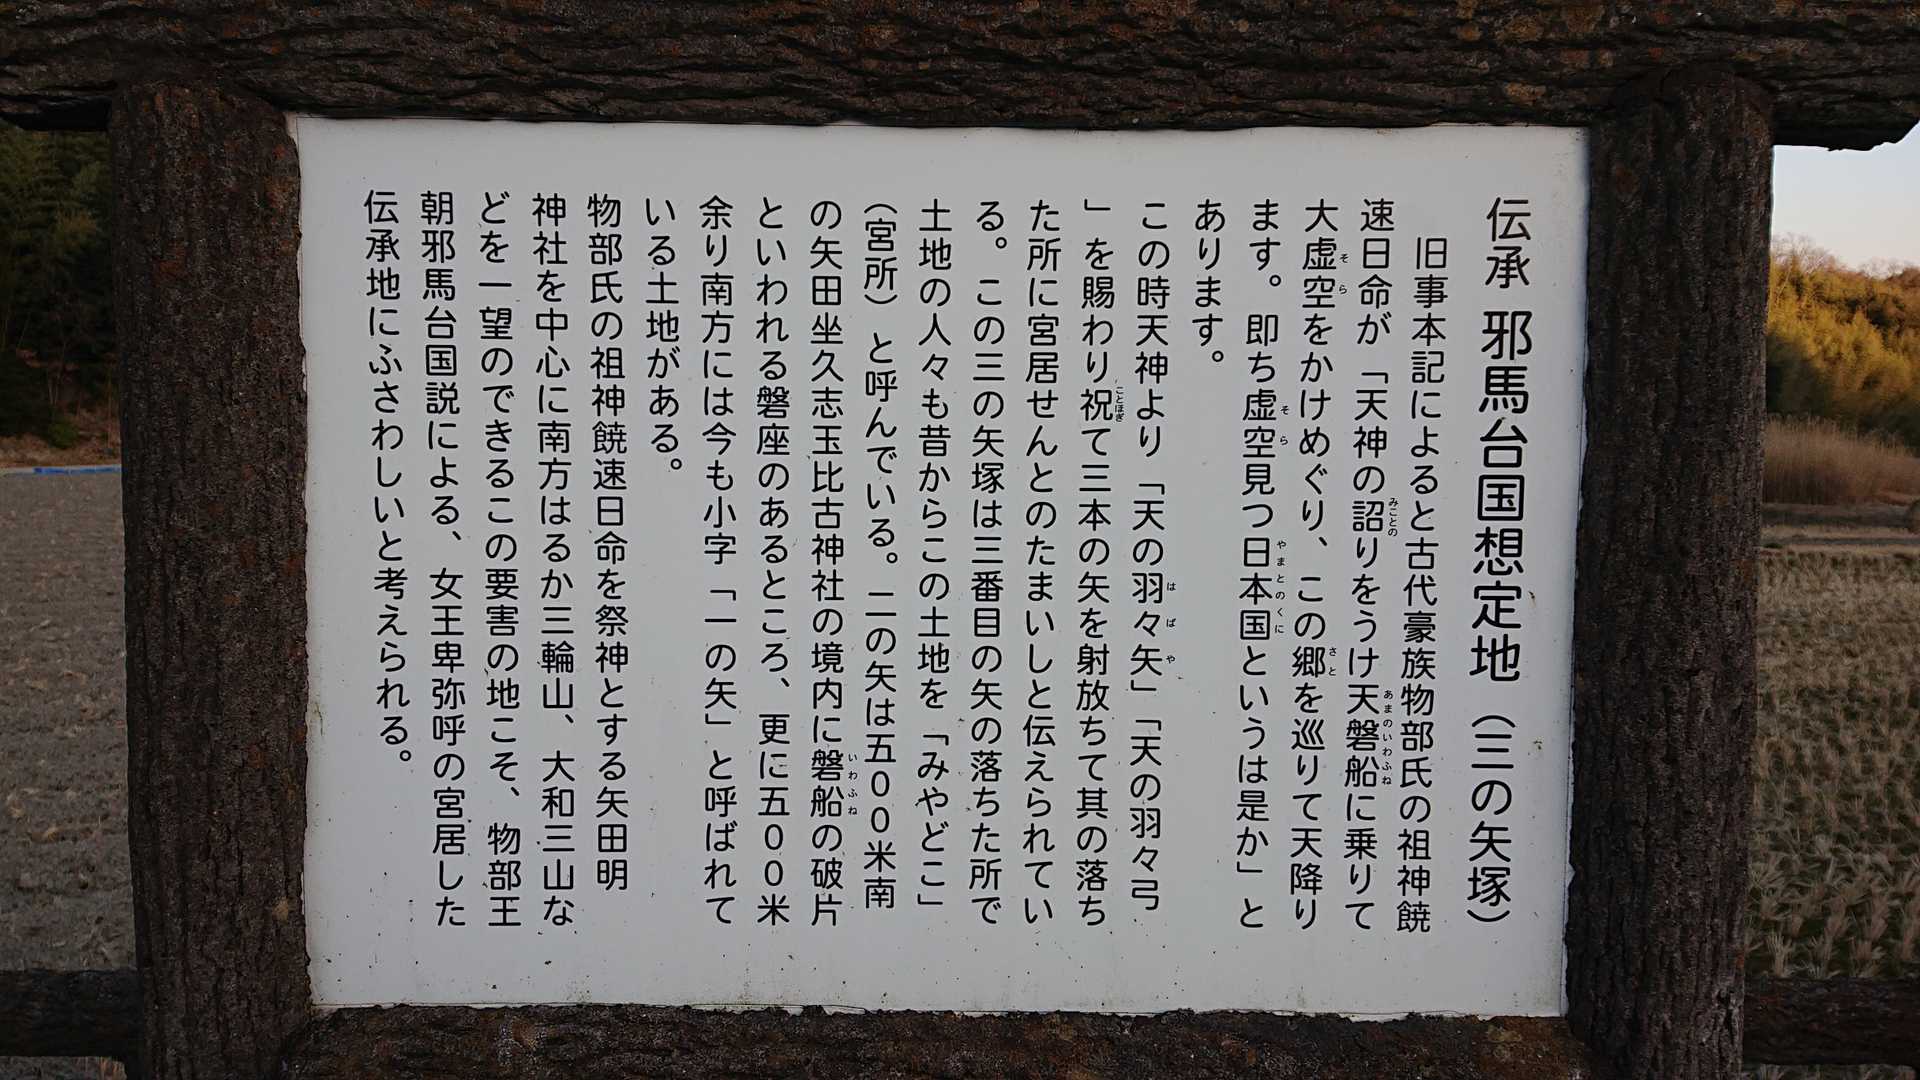 伝承 邪馬台国想定地（三の矢塚）
旧事本記によると古代豪族物部氏の祖神饒
速日命が「天神の詔りをうけ天磐船に乗りて
大虚空をかけめぐり、この郷を巡りて天降り
ます。即ち虚空見つ日本国というは是か」と
あります。
この時天神より「天の羽々矢」「天の羽々弓
」を賜わり祝て三本の矢を射放ちて其の落ち
た所に宮居せんとのたまいしと伝えられてい
る。この三の矢塚は三番目の矢の落ちた所で
土地の人々も昔からこの土地を「みやどこ」
（宮所）と呼んでいる。二の矢は五００米南
の矢田坐久志玉比古神社の境内に磐船の破片
といわれる磐座のあるところ、更に五００米
余り南方には今も小字「一の矢」と呼ばれて
いる土地がある。
物部氏の祖神饒速日命を祭神とする矢田明
神社を中心に南方はるか三輪山、大和三山な
どを一望のできるこの要害の地こそ、物部王
朝邪馬台国説による、女王卑弥呼の宮居した
伝承地にふさわしいと考えられる。